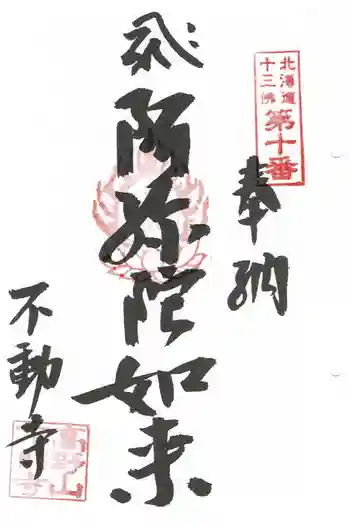 北海道
十三佛
第十番
奉納
阿弥陀如来
不動寺